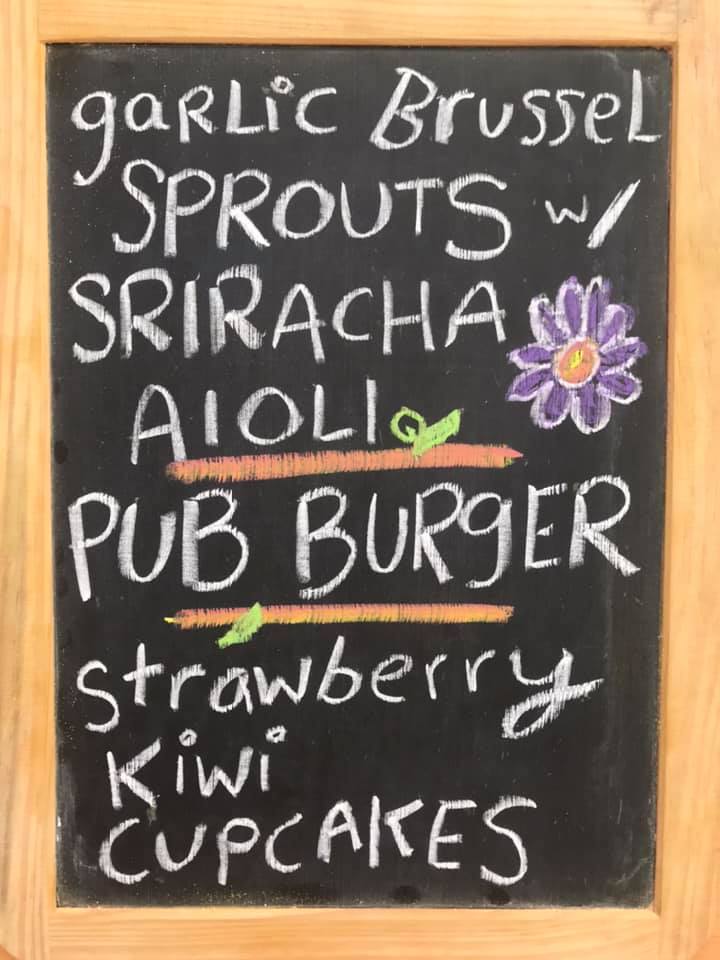 gaRLic BrusseL
SPROUTS w/
SRIRACHA
AIOLI
PUB BURgER
strawberry
Kiwi
CUPCAKES